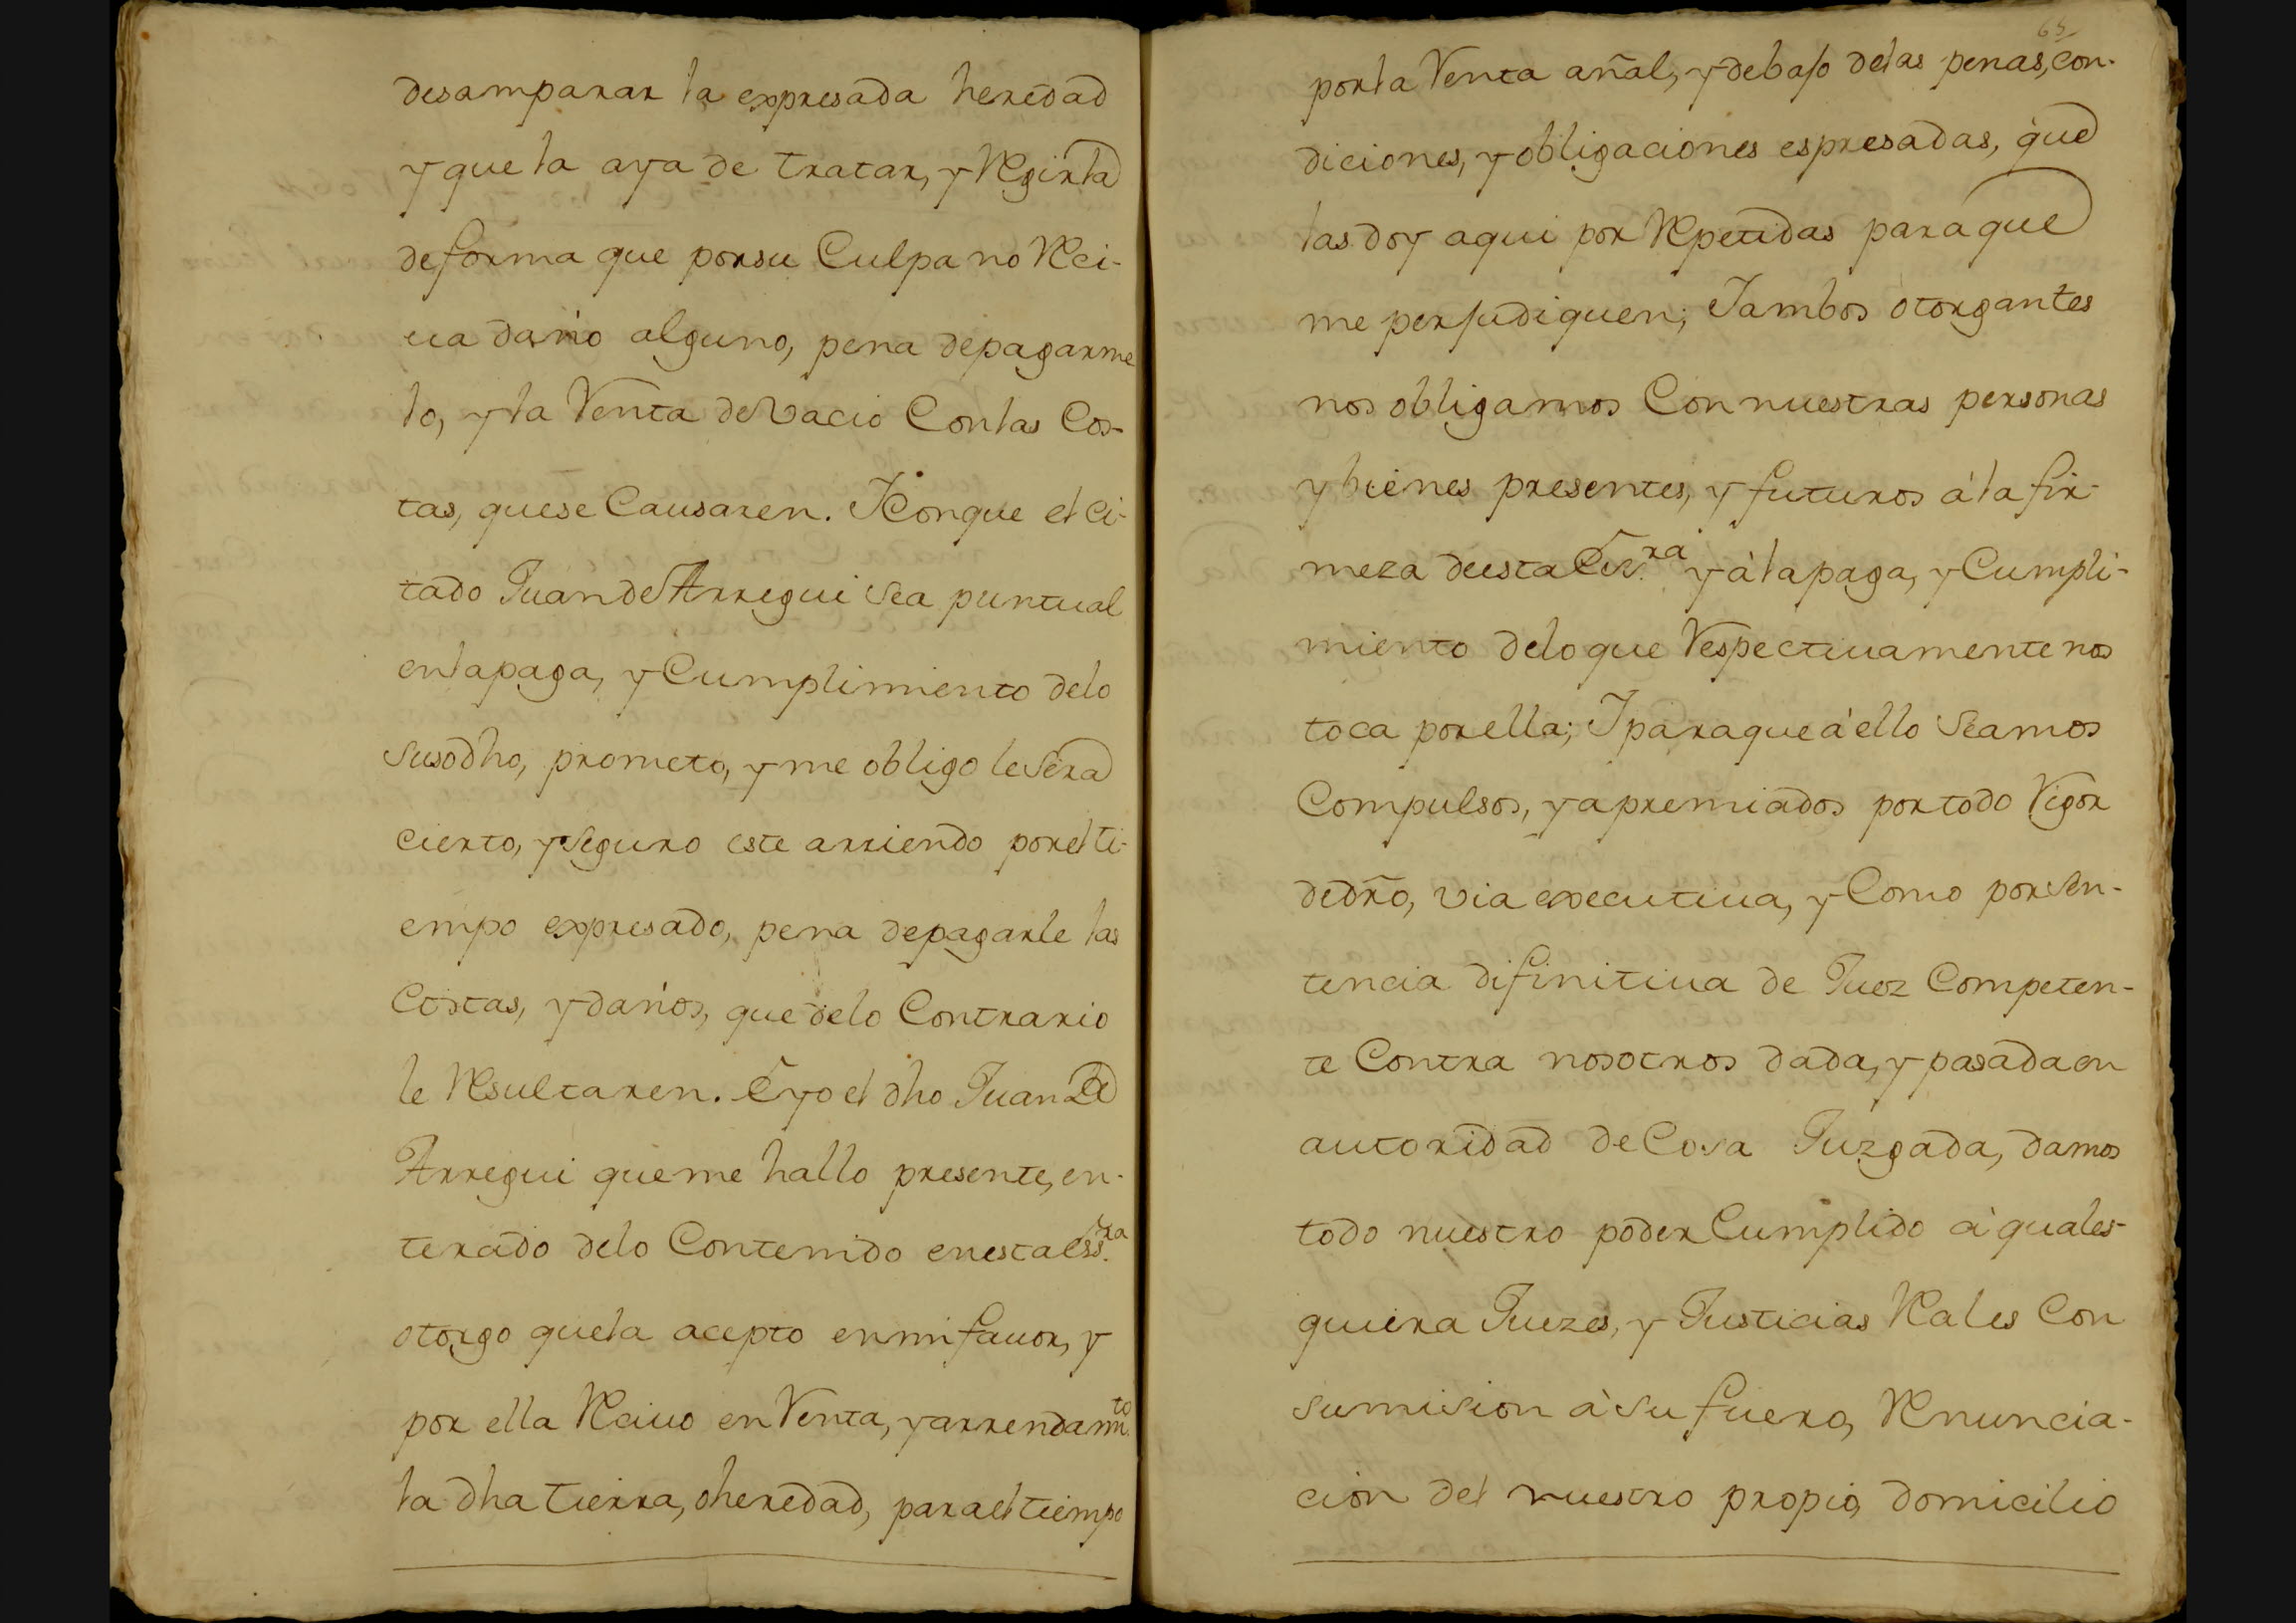 desamparar la expresada heredad
y que la aya de tratar, y Regirla
de forma que por su Culpa no Reci-
ua daño alguno, pena de pagarme
lo, y la Renta de Vacio Con las Cos-
tas, que se Causaren. I Con que el Ci-
tado Juan de Arregui sea puntual
en la paga, y Cumplimiento de lo
susodho, prometo, y me obligo le sera
cierto, y seguro este arriendo por el ti-
empo expresado, pena de pagarle las
Costas, y daños, que de lo Contrario
le Resultaren. E yo el dho Juan de
Arregui que me hallo presente, en-
terado de lo Contenido en esta ess.ra
otorgo que la acepto en mi fauor, y
por ella Reciuo en Renta, y arrendam.to
la dha tierra, o heredad, para el tiempo
65
por la Renta añal, y debajo de las penas, con-
diciones, y obligaciones espresadas, que
las doy aqui por Repetidas para que
me perjudiquen; I ambos otorgantes
nos obligamos Con nuestras personas
y bienes presentes, y futuros à la fir-
meza de esta Ess.ra y à la paga, y Cumpli-
miento de lo que Respectiuamente nos
toca por ella; I para que à ello seamos
Compulsos, y apremiados por todo Rigor
de dro, via executiua, y Como por sen-
tencia difinitiua de Juez Competen-
te Contra nosotros dada, y pasada en
autoridad de Cosa Juzgada, damos
todo nuestro poder Cumplido à quales-
quiera Juezes, y Justicias Reales Con
sumision à su fuero, Renuncia-
cion del nuestro propio, domicilio